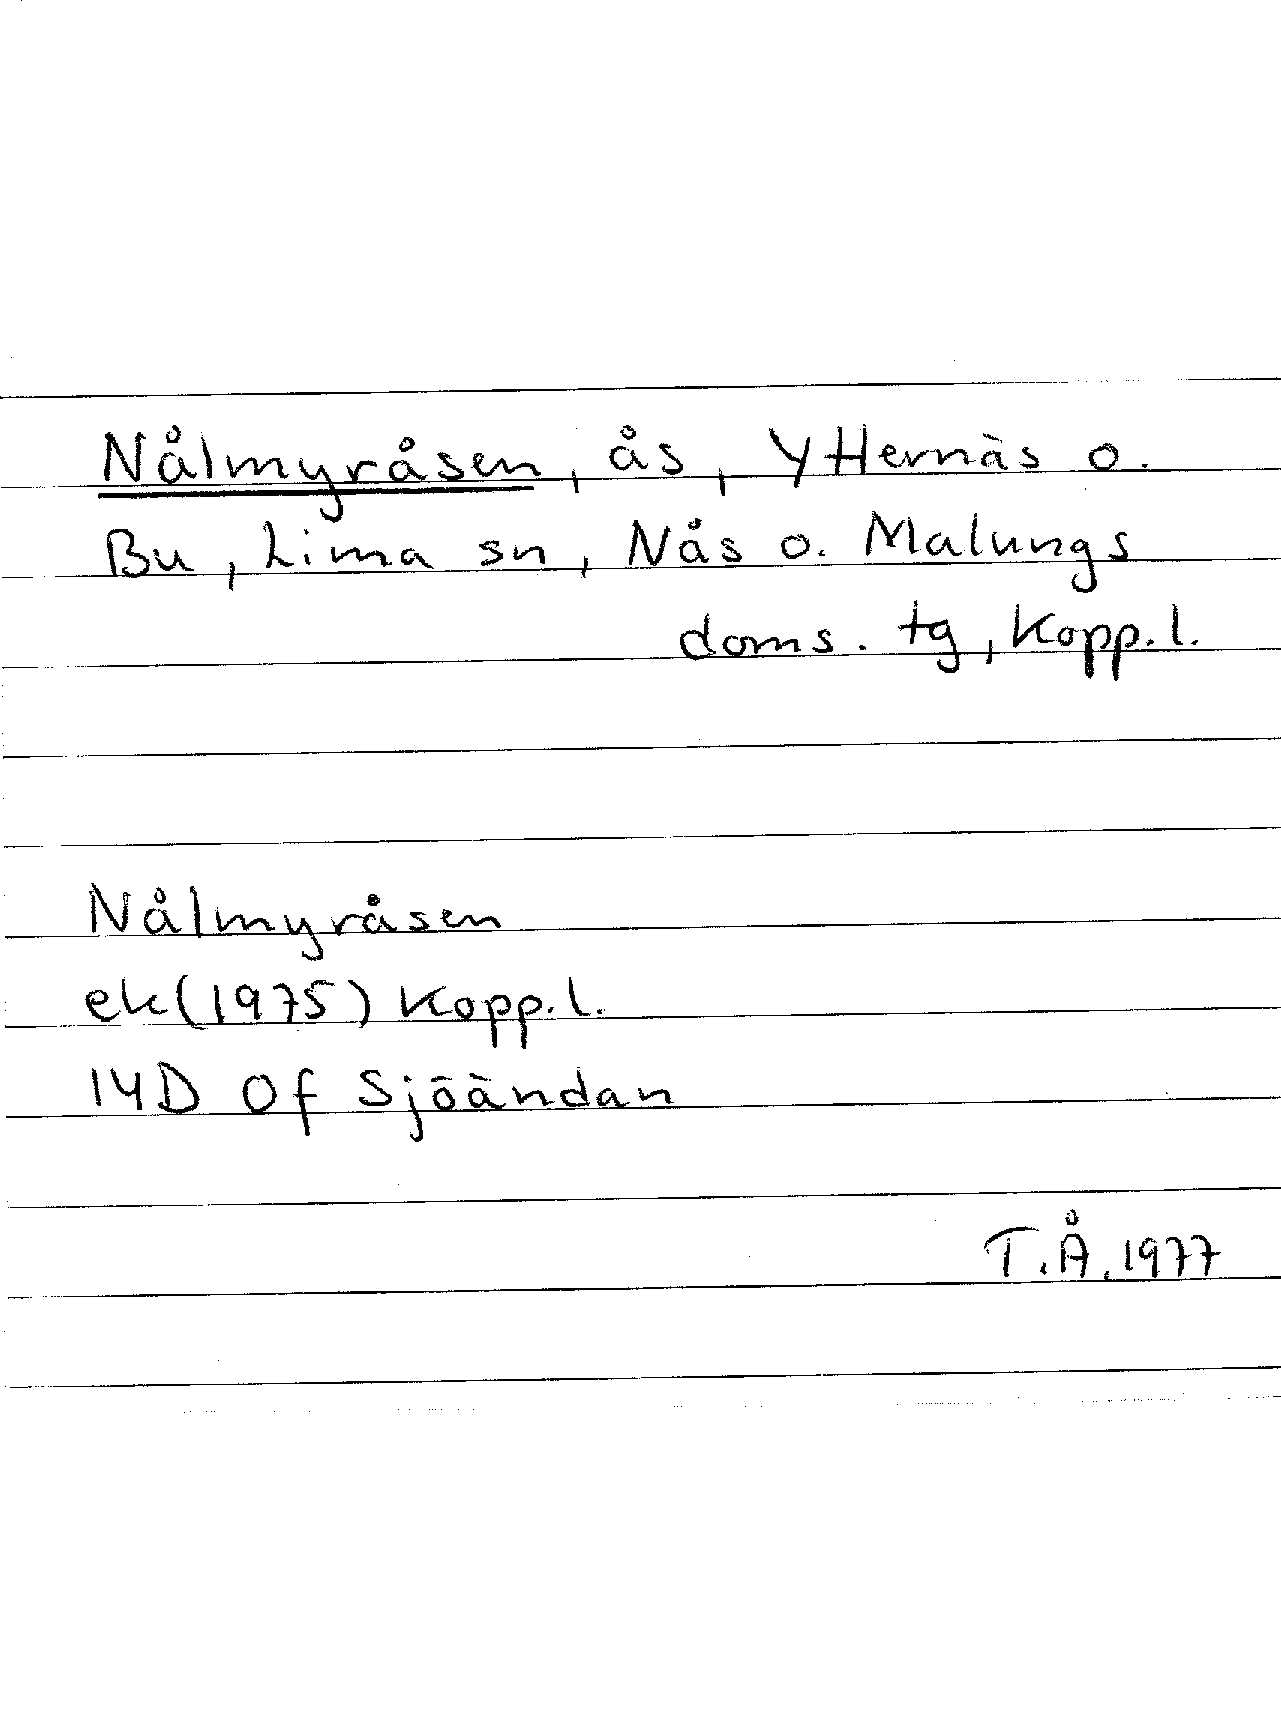 Nålmyråsen, ås, Ytternäs o.
Bu, Lima sn, Nås o. Malungs
doms. tg, Kopp.l.
Nålmyråsen
ek(1975) Kopp.l.
14D 0f Sjöändan
T.Å.1977